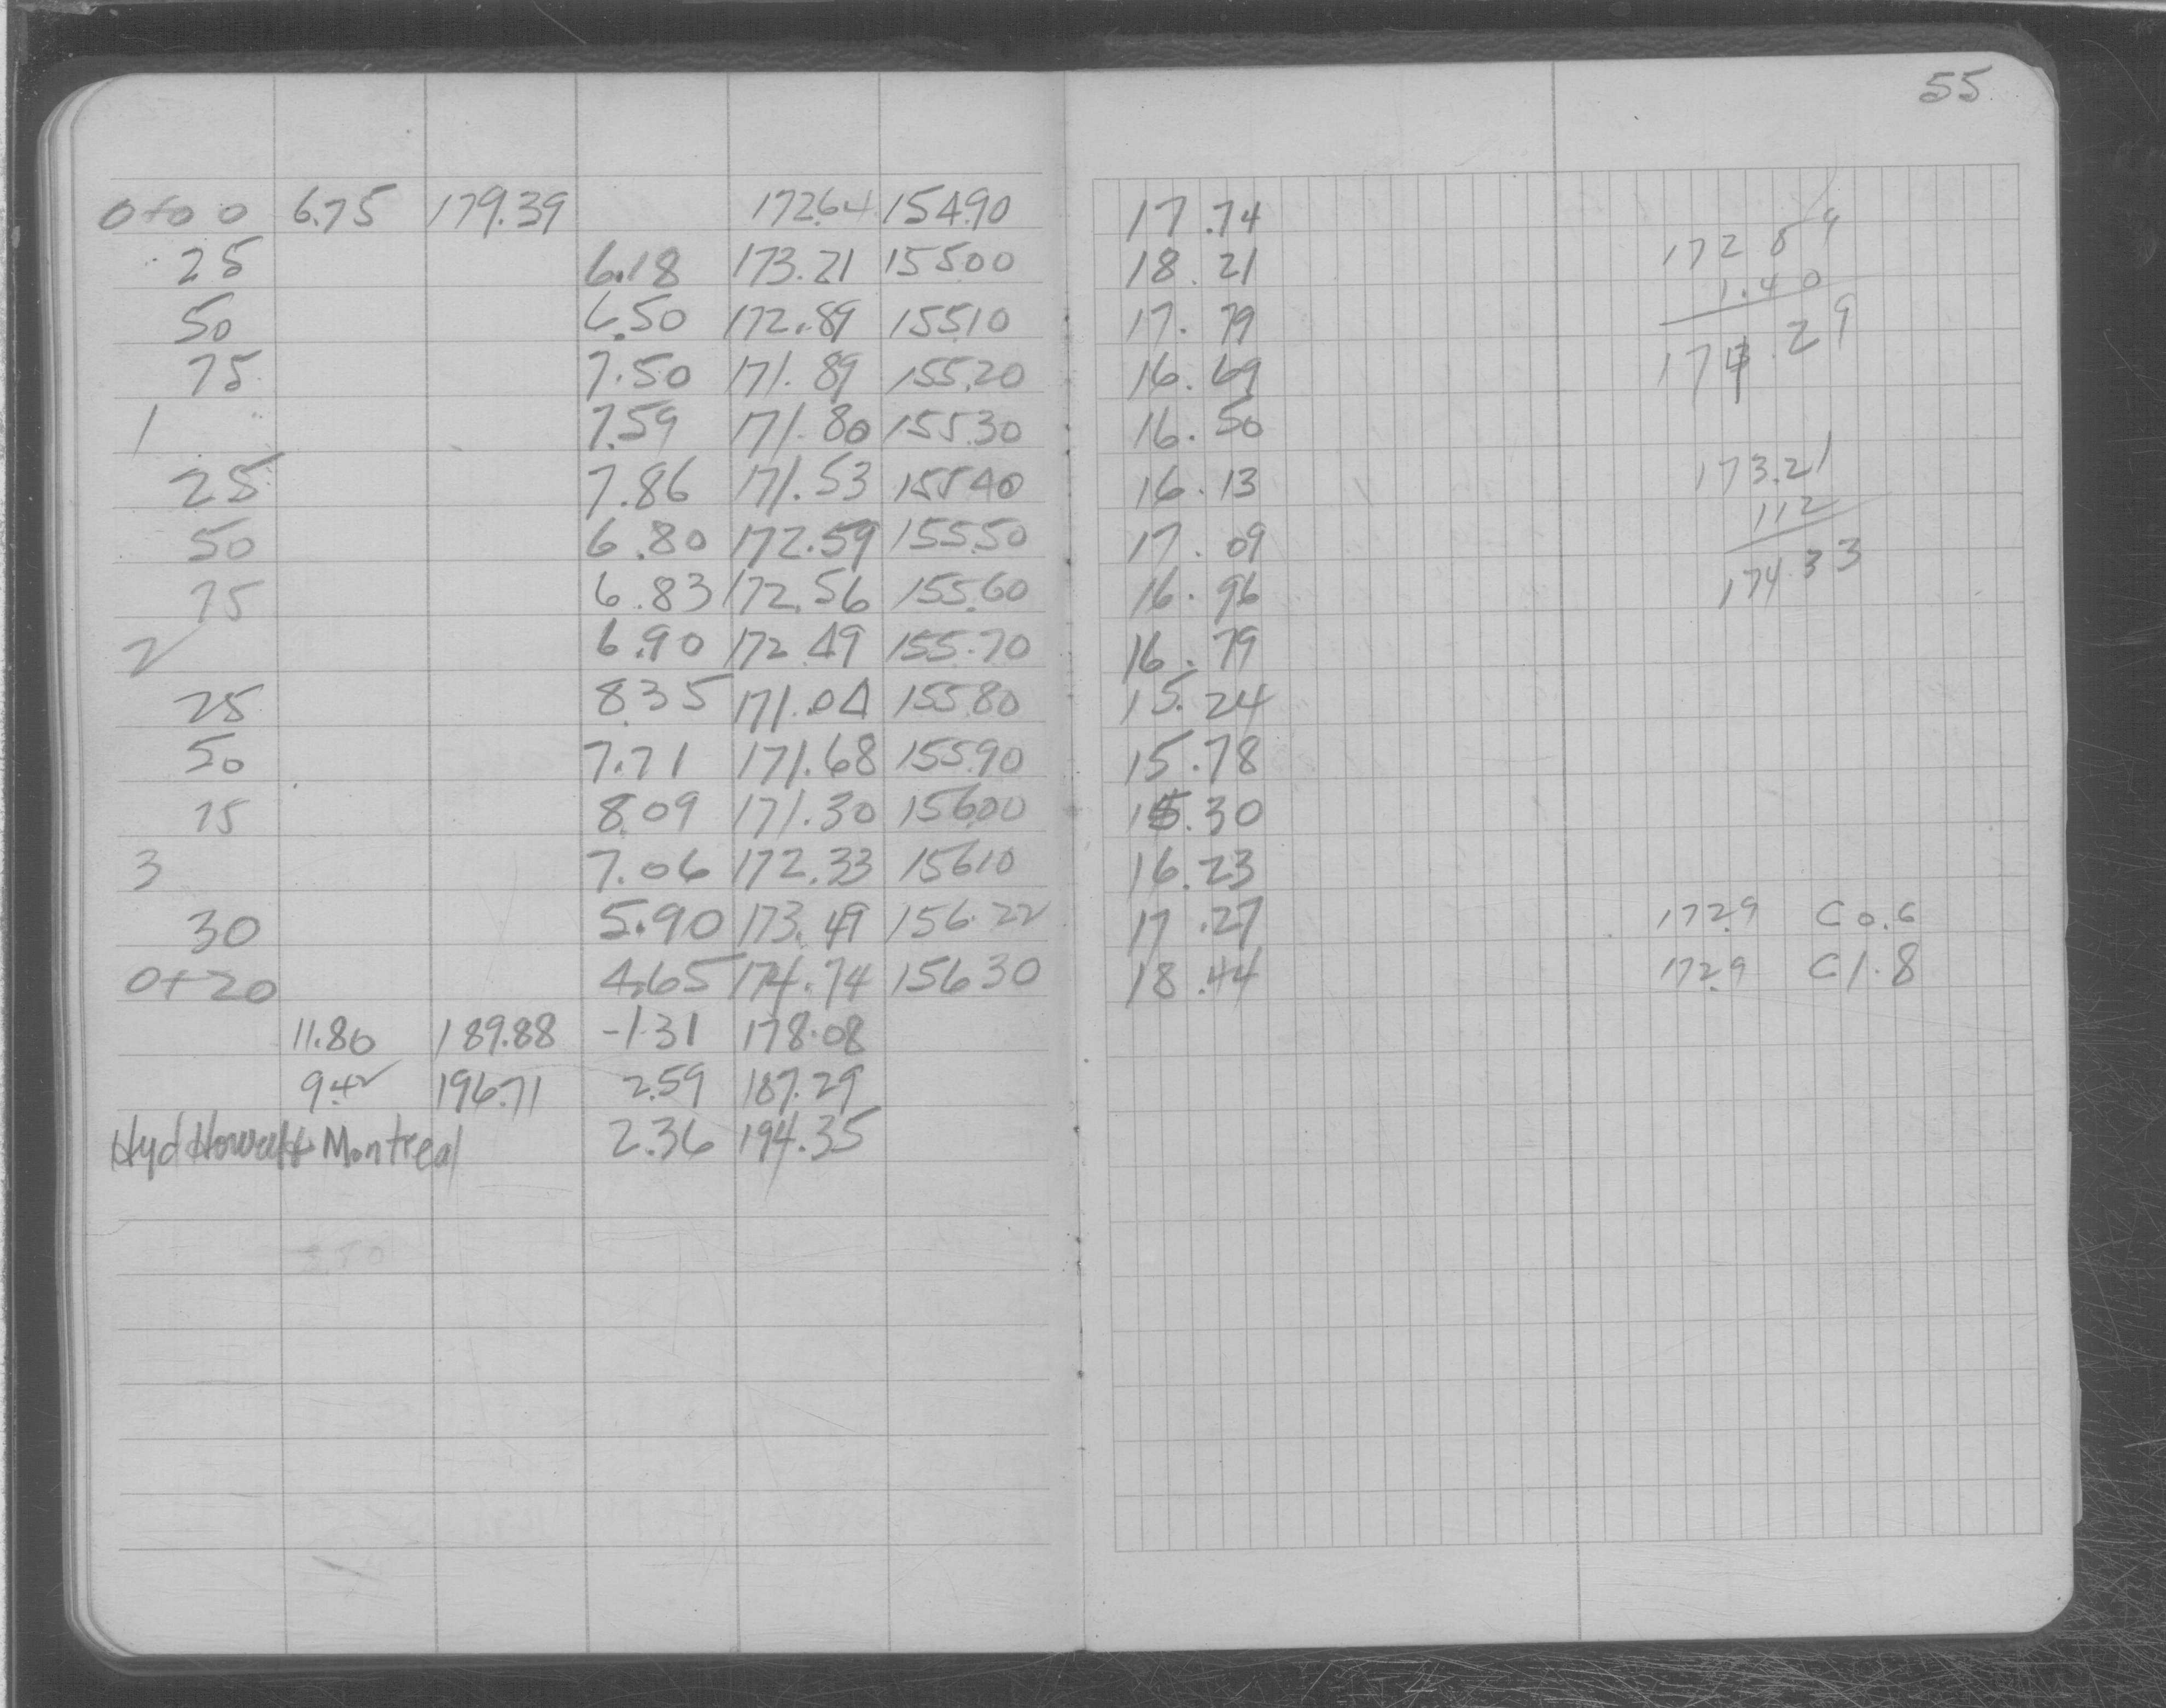 55
0+00 6.75 179.39 172.64 154.90 17.74
25 6.18 173.21 155.00 18.21
50 6.50 172.89 155.10 17.79
75 7.50 171.89 155.20 16.69
1 7.59 171.80 155.30 16.50
25 7.86 171.53 155.40 16.13
50 6.80 172.59 155.50 17.09
75 6.83 172.56 155.60 16.96
2 6.90 172.49 155.70 16.79
25 8.35 171.04 155.80 15.24
50 7.71 171.68 155.90 15.78
75 8.09 171.30 156.00 15.30
3 7.06 172.33 156.10 16.23
30 5.90 173.49 156.22 17.27
0+20 4.65 174.74 156.30 18.44
11.80 189.88 -1.31 178.08
9.42 196.71 2.59 187.29
Hyd Howatt Montreal 2.36 194.35
172 89
1.40
174.29
173.21
112
174.33
172.9 C 0.6
172.9 C 1.8